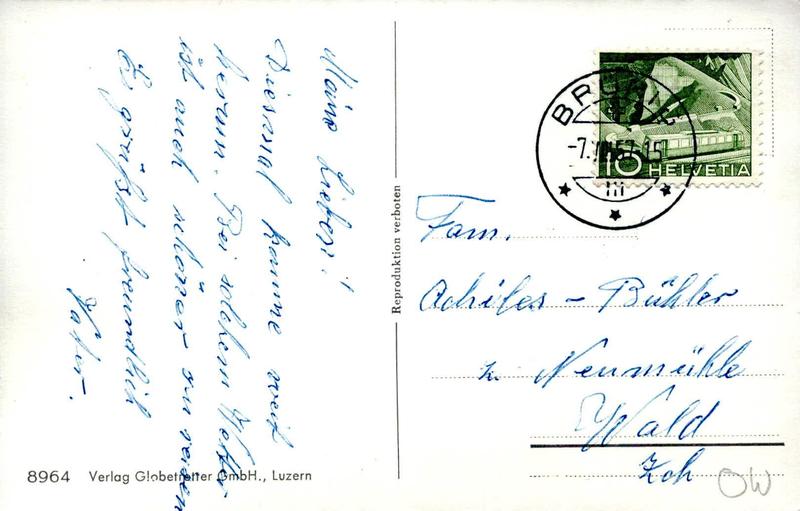 Meine Lieben!
Diesmal komme weit
herum. Bei solchem Wetter
ist auch schöner zu reisen
Es grüsst freundlich
Vater.
Reproduktion verboten
BRÜNIG
-7.VIII.57-15
10 HELVETIA
Fam.
Achilles - Bühler
z. Neumühle
Wald
Zch
OW
8964 Verlag Globetrotter GmbH., Luzern